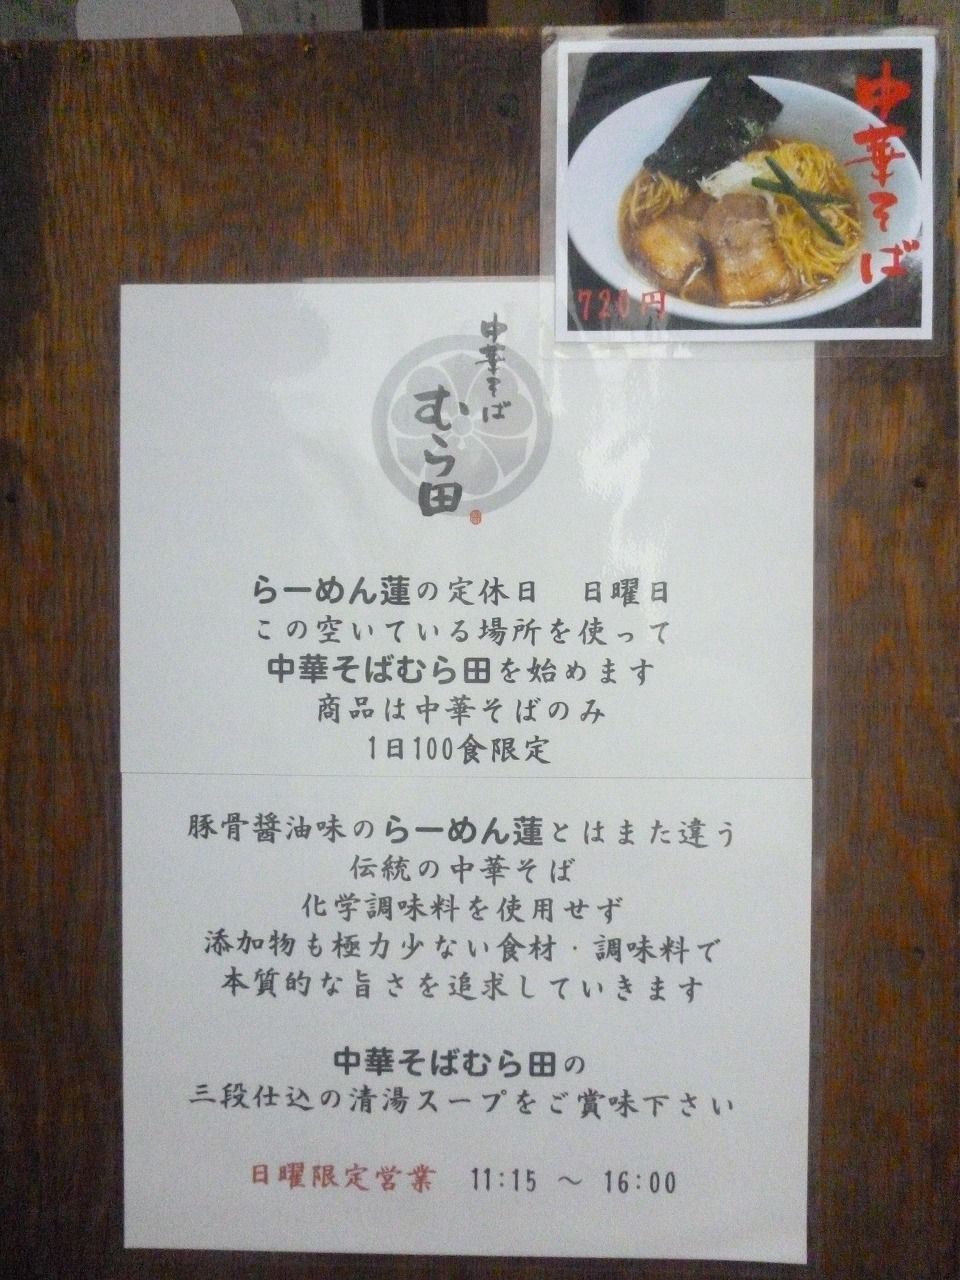 中華そば
720円
中華そば
むら田
らーめん蓮の定休日　日曜日
この空いている場所を使って
中華そばむら田を始めます
商品は中華そばのみ
1日100食限定
豚骨醤油味のらーめん蓮とはまた違う
伝統の中華そば
化学調味料を使用せず
添加物も極力少ない食材・調味料で
本質的な旨さを追求していきます
中華そばむら田の
三段仕込の清湯スープをご賞味下さい
日曜限定営業　11:15 ～ 16:00